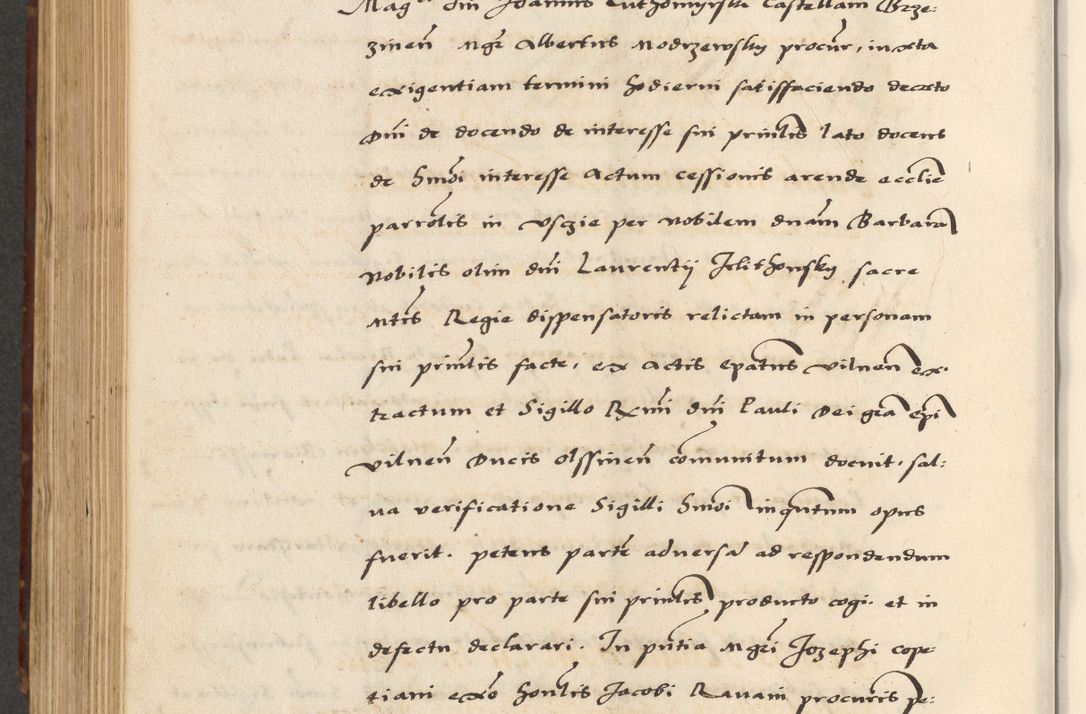 Mag͞ci dni Joannis Luthomyrski Castellani Brze:
zinen̄ Mgr̄ Albertus Modrzewsky procur̄, iuxta
exigentiam termini hodierni satisfaciendo decreto
Dni de docendo de interesse sui prin̄lis lato docens
de h͞mōi interesse Actum cessionis arende eccl̄ie
parro͞lis in Vszie per nobilem dn̄am Barbaram
Nobilis olim dn̄i Laurentij sacre
Mtis Regie dispensatoris relictam in personam
sui prin̄lis facte, ex Actis ep̄atus vilnen̄ ex.
tractum et Sigillo R͞mi dn̄i Pauli Dei gr̄a ep̄i
vilnen̄ Ducis olssinen̄ com̄unitum docuit. sal:
va verificatione Sigilli h͞mōi inquantum opus
fuerit. petens parte͞ adversa͞ ad respondendum
libello pro parte sui prin̄lis producto cogi. et in
defectu declarari. In pn̄tia Mgr̄i Jozephi cope:
tiani ex͞o hon͞lis Jacobi Ravani procur̄is pe: